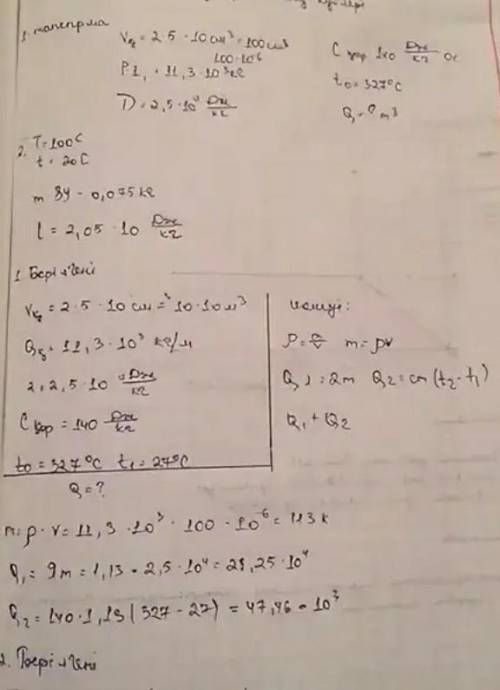 1. тапсырма
V = 2 · 5 · 10 см³ = 100 см³
100 · 10⁻⁶
P1, = 11,3 · 10³ кг
D = 2,5 · 10⁴ Дж/кг
C қор 140 Дж/кг
t₀ = 327°C
Q = ?
2. T = 100 C
t = 20 C
m - 0,075 кг
l = 2,05 · 10 Дж/кг
1. Берілгені
V = 2 · 5 · 10 см = 10 · 10 м³
= 11,3 · 10³ кг/м
2,5 · 10 Дж/кг
C қор = 140 Дж/кг
t₀ = 327°C t₁ = 27°C
Q = ?
Шешуі:
m = ρv
Q₁ = λm Q₂ = cm(t₂ - t₁)
Q₁ + Q₂
m = ρ · V = 11,3 · 10³ · 100 · 10⁻⁶ = 113 к
Q₁ = 9m = 1,13 · 2,5 · 10⁴ = 28,25 · 10⁴
Q₂ = 140 · 1,13 (327 - 27) = 47,46 · 10³
2. Берілгені